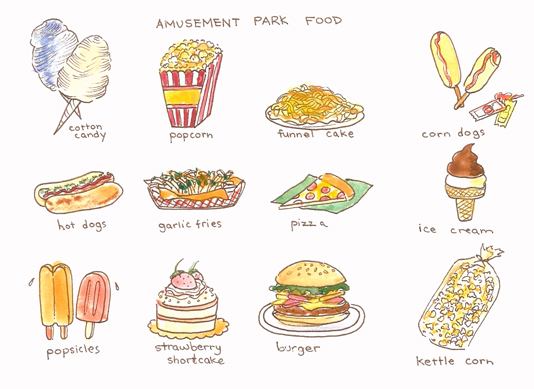 AMUSEMENT PARK FOOD
cotton
candy
popcorn
funnel cake
corn dogs
hot dogs
garlic fries
pizza
ice cream
popsicles
strawberry
shortcake
burger
kettle corn